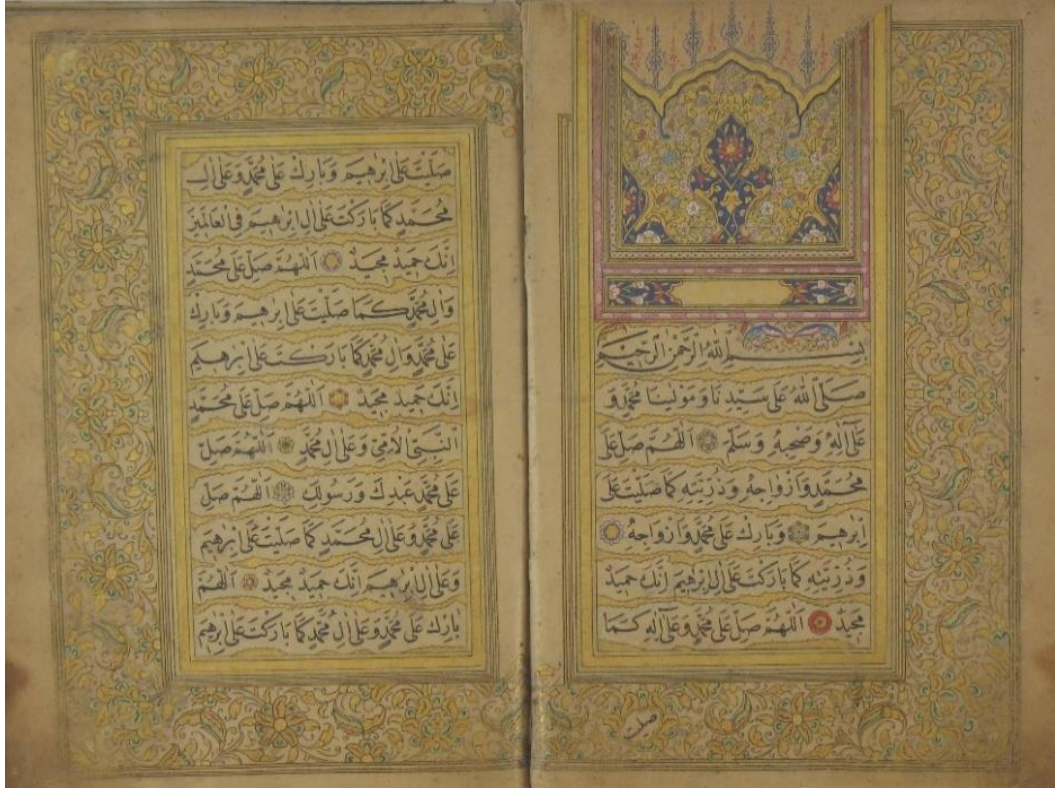 بِسْمِ اللهِ الرَّحْمٰنِ الرَّحِيمِ
صَلَّى اللهُ عَلَى سَيِّدِنَا وَمَوْلٰينَا مُحَمَّدٍ وَ
عَلٰٓى اٰلِهِ وَصَحْبِهِ وَسَلَّمْ اَللّٰهُمَّ صَلِّ عَلٰى
مُحَمَّدٍ وَاَزْوَاجِهِ وَذُرِّيَّتِهِ كَمَا صَلَّيْتَ عَلٰى
اِبْرٰهِيمَ وَبَارِكْ عَلٰى مُحَمَّدٍ وَاَزْوَاجِهِ
وَذُرِّيَّتِهِ كَمَا بَارَكْتَ عَلٰى اٰلِ اِبْرٰهِيمَ اِنَّكَ حَمِيدٌ
مَجِيدٌ اَللّٰهُمَّ صَلِّ عَلٰى مُحَمَّدٍ وَعَلٰى اٰلِهِ كَمَا
صل
صَلَّيْتَ عَلٰى اِبْرٰهِيمَ وَبَارِكْ عَلٰى مُحَمَّدٍ وَعَلٰى اٰلِ
مُحَمَّدٍ كَمَا بَارَكْتَ عَلٰى اٰلِ اِبْرٰهِيمَ فِى الْعَالَمِينَ
اِنَّكَ حَمِيدٌ مَجِيدٌ اَللّٰهُمَّ صَلِّ عَلٰى مُحَمَّدٍ
وَاٰلِ مُحَمَّدٍ كَمَا صَلَّيْتَ عَلٰى اِبْرٰهِيمَ وَبَارِكْ
عَلٰى مُحَمَّدٍ وَاٰلِ مُحَمَّدٍ كَمَا بَارَكْتَ عَلٰى اِبْرٰهِيمَ
اِنَّكَ حَمِيدٌ مَجِيدٌ اَللّٰهُمَّ صَلِّ عَلٰى مُحَمَّدٍ
النَّبِىِّ الْاُمِّىِّ وَعَلٰى اٰلِ مُحَمَّدٍ اَللّٰهُمَّ صَلِّ
عَلٰى مُحَمَّدٍ عَبْدِكَ وَرَسُولِكَ اَللّٰهُمَّ صَلِّ
عَلٰى مُحَمَّدٍ وَعَلٰى اٰلِ مُحَمَّدٍ كَمَا صَلَّيْتَ عَلٰى اِبْرٰهِيمَ
وَعَلٰى اٰلِ اِبْرٰهِيمَ اِنَّكَ حَمِيدٌ مَجِيدٌ اَللّٰهُمَّ
بَارِكْ عَلٰى مُحَمَّدٍ وَعَلٰى اٰلِ مُحَمَّدٍ كَمَا بَارَكْتَ عَلٰى اِبْرٰهِيمَ